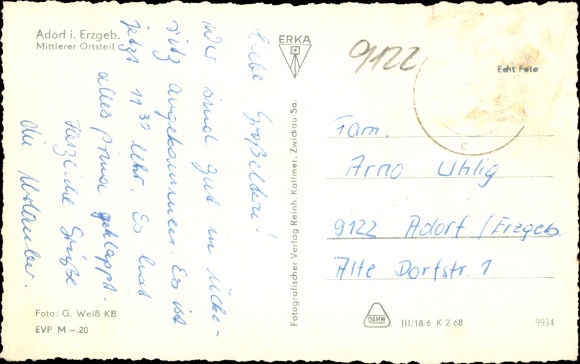 Adorf i. Erzgeb.
Mittlerer Ortsteil
Liebe Großeltern!
Wir sind gut in
ritz angekommen. Es ist
jetzt 11³⁰ Uhr. Es hat
alles prima geklappt.
Herzliche Grüße
die Urlauber.
Foto: G. Weiß KB
EVP M –.20
ERKA
Fotografischer Verlag Reinh. Kallmer, Zwickau-Sa.
9122
Echt Foto
Fam.
Arno Uhlig
9122 Adorf / Erzgeb
Alte Dorfstr. 1
III/18/6 K 2 68
9934